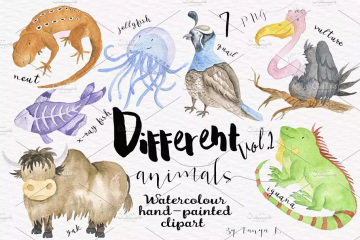 jellyfish
7 PNG
vulture
quail
newt
x-ray fish
Different
vol 2
animals
Watercolour
hand-painted
clipart
iguana
yak
by Tanya K.